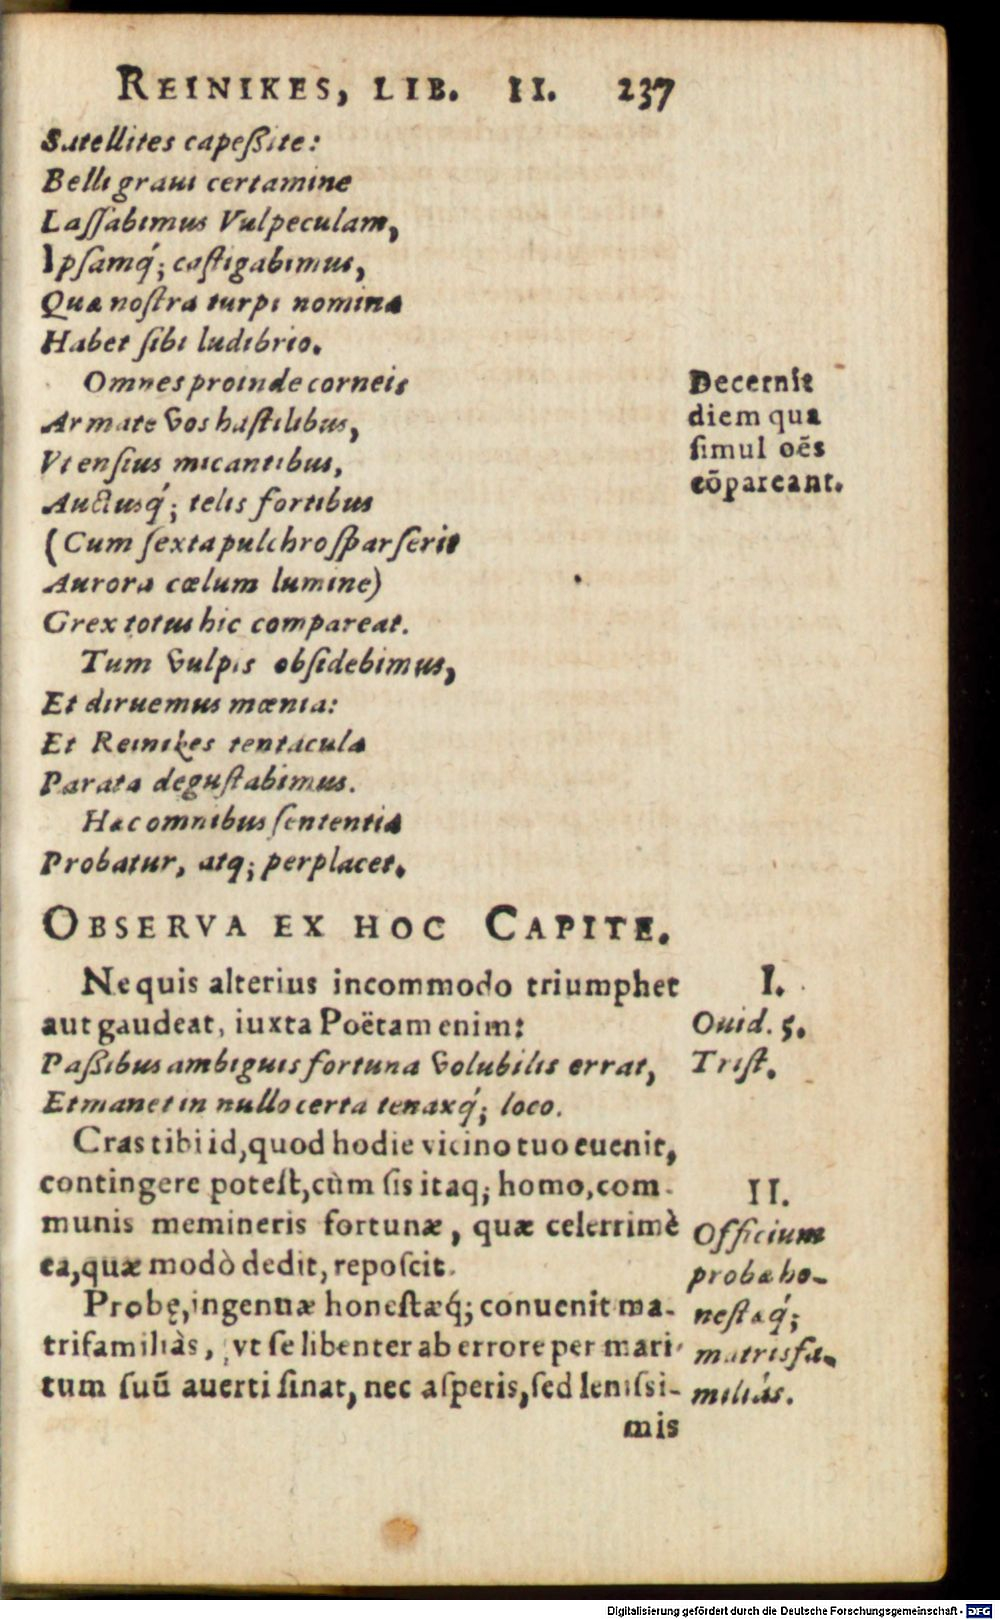 REINIKES, LIB. II. 237
Satellites capeßite:
Belli graui certamine
Laſſabimus Vulpeculam,
Ipſamq́; caſtigabimus,
Quæ noſtra turpi nomina
Habet ſibi ludibrio.
Omnes proinde corneis
Armate vos haſtilibus,
Vt enſius micantibus,
Auctusq́; telis fortibus
(Cum ſexta pulchro ſparſerit
Aurora cœlum lumine)
Grex totus hic compareat.
Decernit
diem qua
ſimul oẽs
cõpareant.
Tum vulpis obſidebimus,
Et diruemus mœnia:
Et Reinikes tentacula
Parata deguſtabimus.
Hæc omnibus ſententia
Probatur, atq; perplacet.
OBSERVA EX HOC CAPITE.
Ne quis alterius incommodo triumphet
aut gaudeat, iuxta Poëtam enim:
Paßibus ambiguis fortuna volubilis errat,
Et manet in nullo certa tenaxq́; loco.
I.
Ouid. 5.
Triſt.
Cras tibi id, quod hodie vicino tuo euenit,
contingere poteſt, cùm ſis itaq; homo, com-
munis memineris fortunæ, quæ celerrimè
ea, quæ modò dedit, repoſcit.
Probę, ingenuæ honeſtæq́; conuenit ma-
trifamiliàs, vt ſe libenter ab errore per mari-
tum ſuũ auerti ſinat, nec aſperis, ſed leniſsi-
mis
II.
Officium
probæ ho-
neſtæq́;
matrisfa-
miliás.
Digitalisierung gefördert durch die Deutsche Forschungsgemeinschaft - DFG